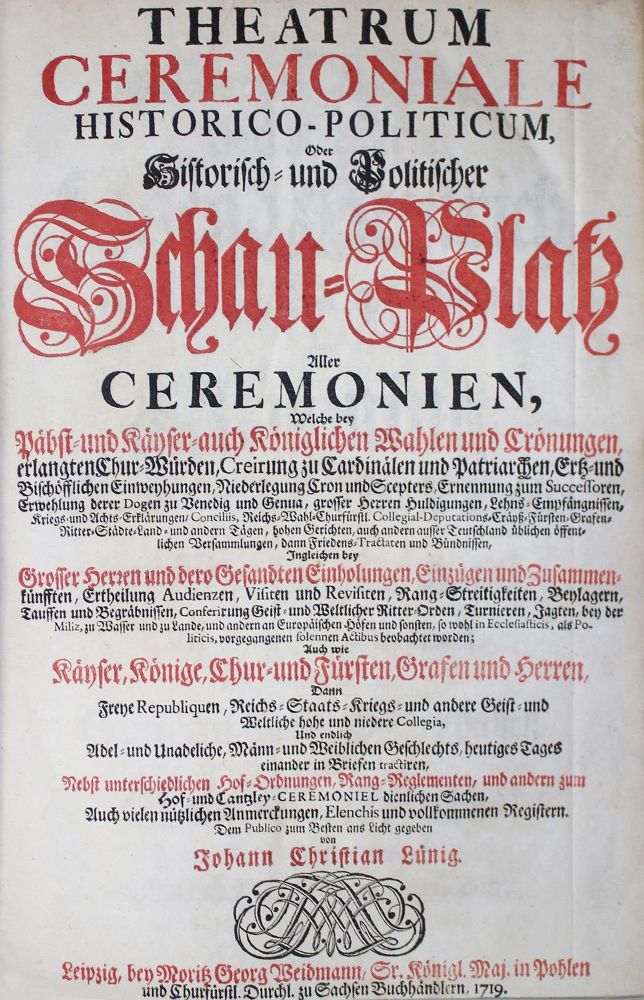 THEATRUM
CEREMONIALE
HISTORICO-POLITICUM,
Oder
Historisch- und Politischer
Schau-Platz
Aller
CEREMONIEN,
Welche bey
Päbst- und Käyser- auch Königlichen Wahlen und Crönungen,
erlangten Chur-Würden, Creirung zu Cardinälen und Patriarchen, Ertz- und
Bischöfflichen Einweyhungen, Niederlegung Cron und Scepters, Ernennung zum Successoren,
Erwehlung derer Dogen zu Venedig und Genua, grosser Herren Huldigungen, Lehns-Empfängnissen,
Kriegs- und Achts-Erklärungen/ Conciliis, Reichs-Wahl-Churfürstl. Collegial-Deputations-Cräyß-Fürsten-Grafen-
Ritter-Städte-Land- und andern Tägen, hohen Gerichten, auch andern ausser Teutschland üblichen öffent-
lichen Versammlungen, dann Friedens-Tractaten und Bündnissen,
Ingleichen bey
Grosser Herren und dero Gesandten Einholungen, Einzügen und Zusammen-
künfften, Ertheilung Audienzen, Visiten und Revisiten, Rang-Streitigkeiten, Beylagern,
Tauffen und Begräbnissen, Conferirung Geist- und Weltlicher Ritter-Orden, Turnieren, Jagten, bey der
Miliz, zu Wasser und zu Lande, und andern an Europäischen Höfen und sonsten, so wohl in Ecclesiasticis, als Po-
liticis, vorgegangenen solennen Actibus beobachtet worden;
Auch wie
Käyser, Könige, Chur- und Fürsten, Grafen und Herren,
Dann
Freye Republiquen, Reichs-Staats-Kriegs- und andere Geist- und
Weltliche hohe und niedere Collegia,
Und endlich
Adel- und Unadeliche, Männ- und Weiblichen Geschlechts, heutiges Tages
einander in Briefen tractiren,
Nebst unterschiedlichen Hof-Ordnungen, Rang-Reglementen, und andern zum
Hof- und Cantzley-CEREMONIEL dienlichen Sachen,
Auch vielen nützlichen Anmerckungen, Elenchis und vollkommenen Registern.
Dem Publico zum Besten ans Licht gegeben
von
Johann Christian Lünig.
Leipzig, bey Moritz Georg Weidmann, Sr. Königl. Maj. in Pohlen
und Churfürstl. Durchl. zu Sachsen Buchhändlern, 1719.